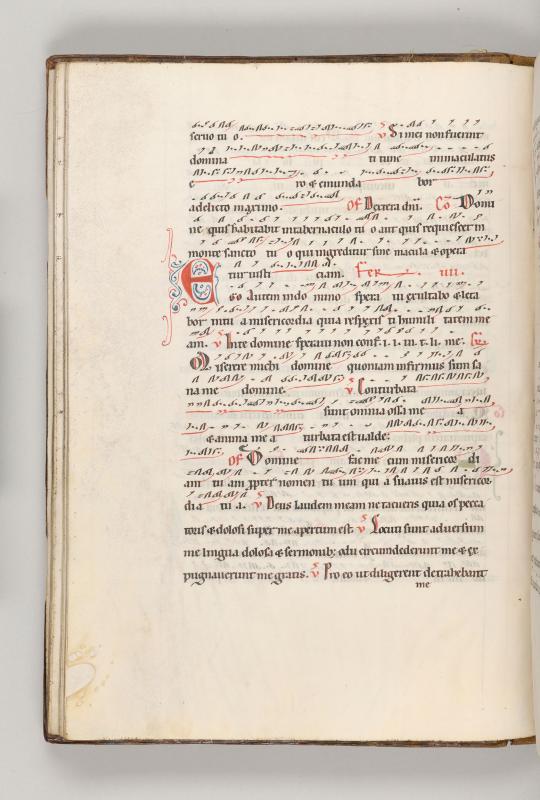 seruo tu o. v Si mei non fuerint
domina ti tunc inmaculatus
e ro & emunda bor
a delicto maximo. Of Dextera dni. Co Domi
ne quis habitabit in tabernaculo tu o aut quis requiescet in
monte sancto tu o qui ingreditur sine macula & opera
tur iusti ciam. Fer iiii.
Ego Autem in do mino spera ui exultabo & leta
bor in tu a misericordia quia respexisti humili tatem me
am. v In te domine speraui non conf. i. i. m. t. li. me.
Miserere michi domine quoniam infirmus sum sa
na me domine. v Conturbata
sunt omnia ossa me a
& anima me a turbata est ualde.
Of Domine fac me cum misericor di
am tu am propter nomen tu um qui a suauis est misericor
di a tu a. v Deus laudem meam ne tacueris quia os pecca
toris & dolosi super me apertum est. v Locuti sunt aduersum
me lingua dolosa & sermonib; odii circundederunt me & ex
pugnauerunt me gratis. v Pro eo ut diligerent detrahebant
me